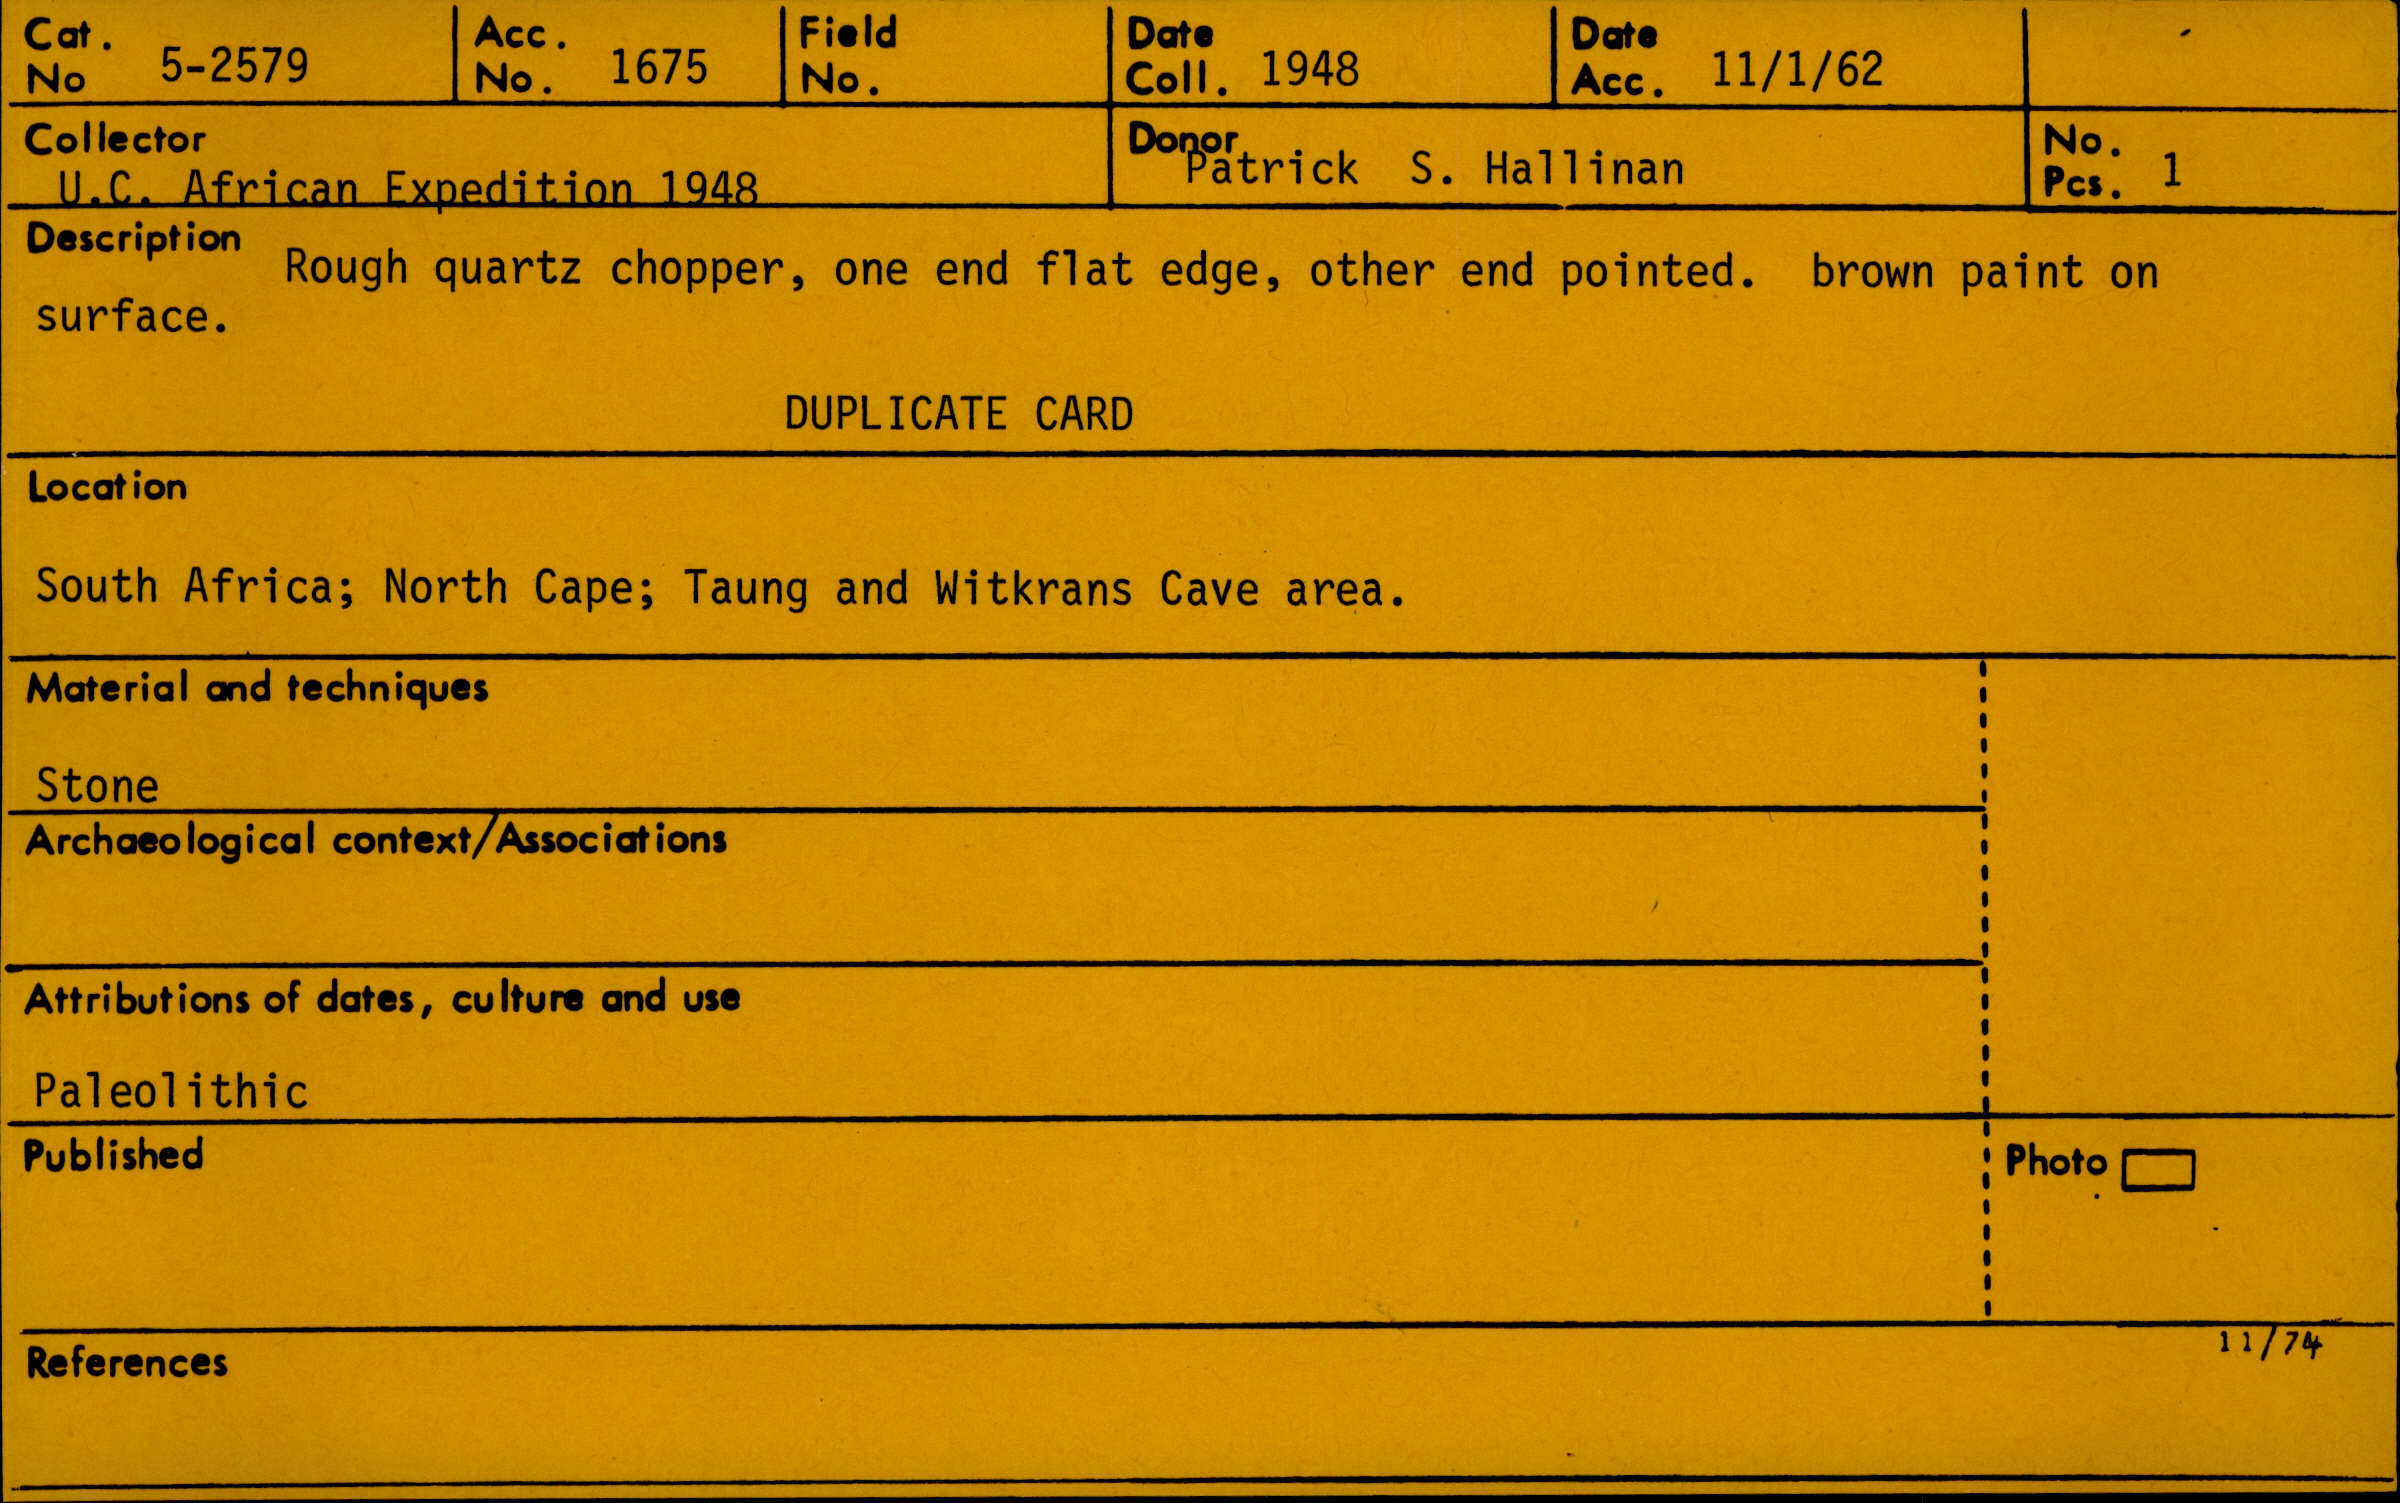 Cat. No 5-2579 Acc. No. 1675 Field No. Date Coll. 1948 Date Acc. 11/1/62
Collector U.C. African Expedition 1948 Donor Patrick S. Hallinan No. Pcs. 1
Description Rough quartz chopper, one end flat edge, other end pointed. brown paint on
surface.
DUPLICATE CARD
Location
South Africa; North Cape; Taung and Witkrans Cave area.
Material and techniques
Stone
Archaeological context/Associations
Attributions of dates, culture and use
Paleolithic
Published
Photo
11/74
References